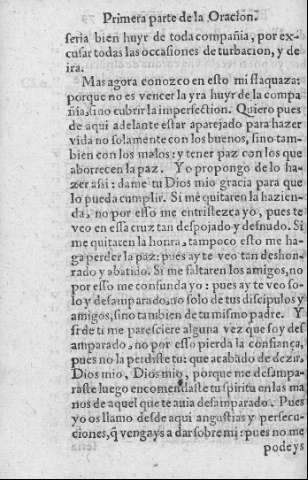 Primera parte de la Oracion.
seria bien huyr de toda compañia, por ex-
cusar todas las occasiones de turbacion, y de
ira.
Mas agora conozco en esto mi flaqueza:
porque no es vencer la yra huyr de la compa
ñia, sino cubrir la imperfection. Quiero pues
de aqui adelante estar aparejado para hazer
vida no solamente con los buenos, sino tam-
bien con los malos: y tener paz con los que
aborrecen la paz. Yo propongo de lo ha-
zer assi: dame tu Dios mio gracia para que
lo pueda cumplir. Si me quitaren la hazien-
da, no por esso me entristezca yo, pues te
veo en essa cruz tan despojado y desnudo. Si
me quitaren la honra, tampoco esto me ha-
ga perder la paz: pues ay te veo tan deshon-
rado y abatido. Si me faltaren los amigos, no
por esso me confunda yo: pues ay te veo so-
lo y desamparado, no solo de tus discipulos y
amigos, sino tambien de tu mismo padre. Y
si de ti me paresciere alguna vez que soy des
amparado, no por esso pierda la confiança,
pues no la perdiste tu: que acabado de dezir,
Dios mio, Dios mio, porque me desampa-
raste luego encomendaste tu spiritu en las ma
nos de aquel que te auia desamparado. Pues
yo os llamo desde aqui angustias y persecu-
ciones, q̃ vengays a dar sobre mi: pues no me
podeys